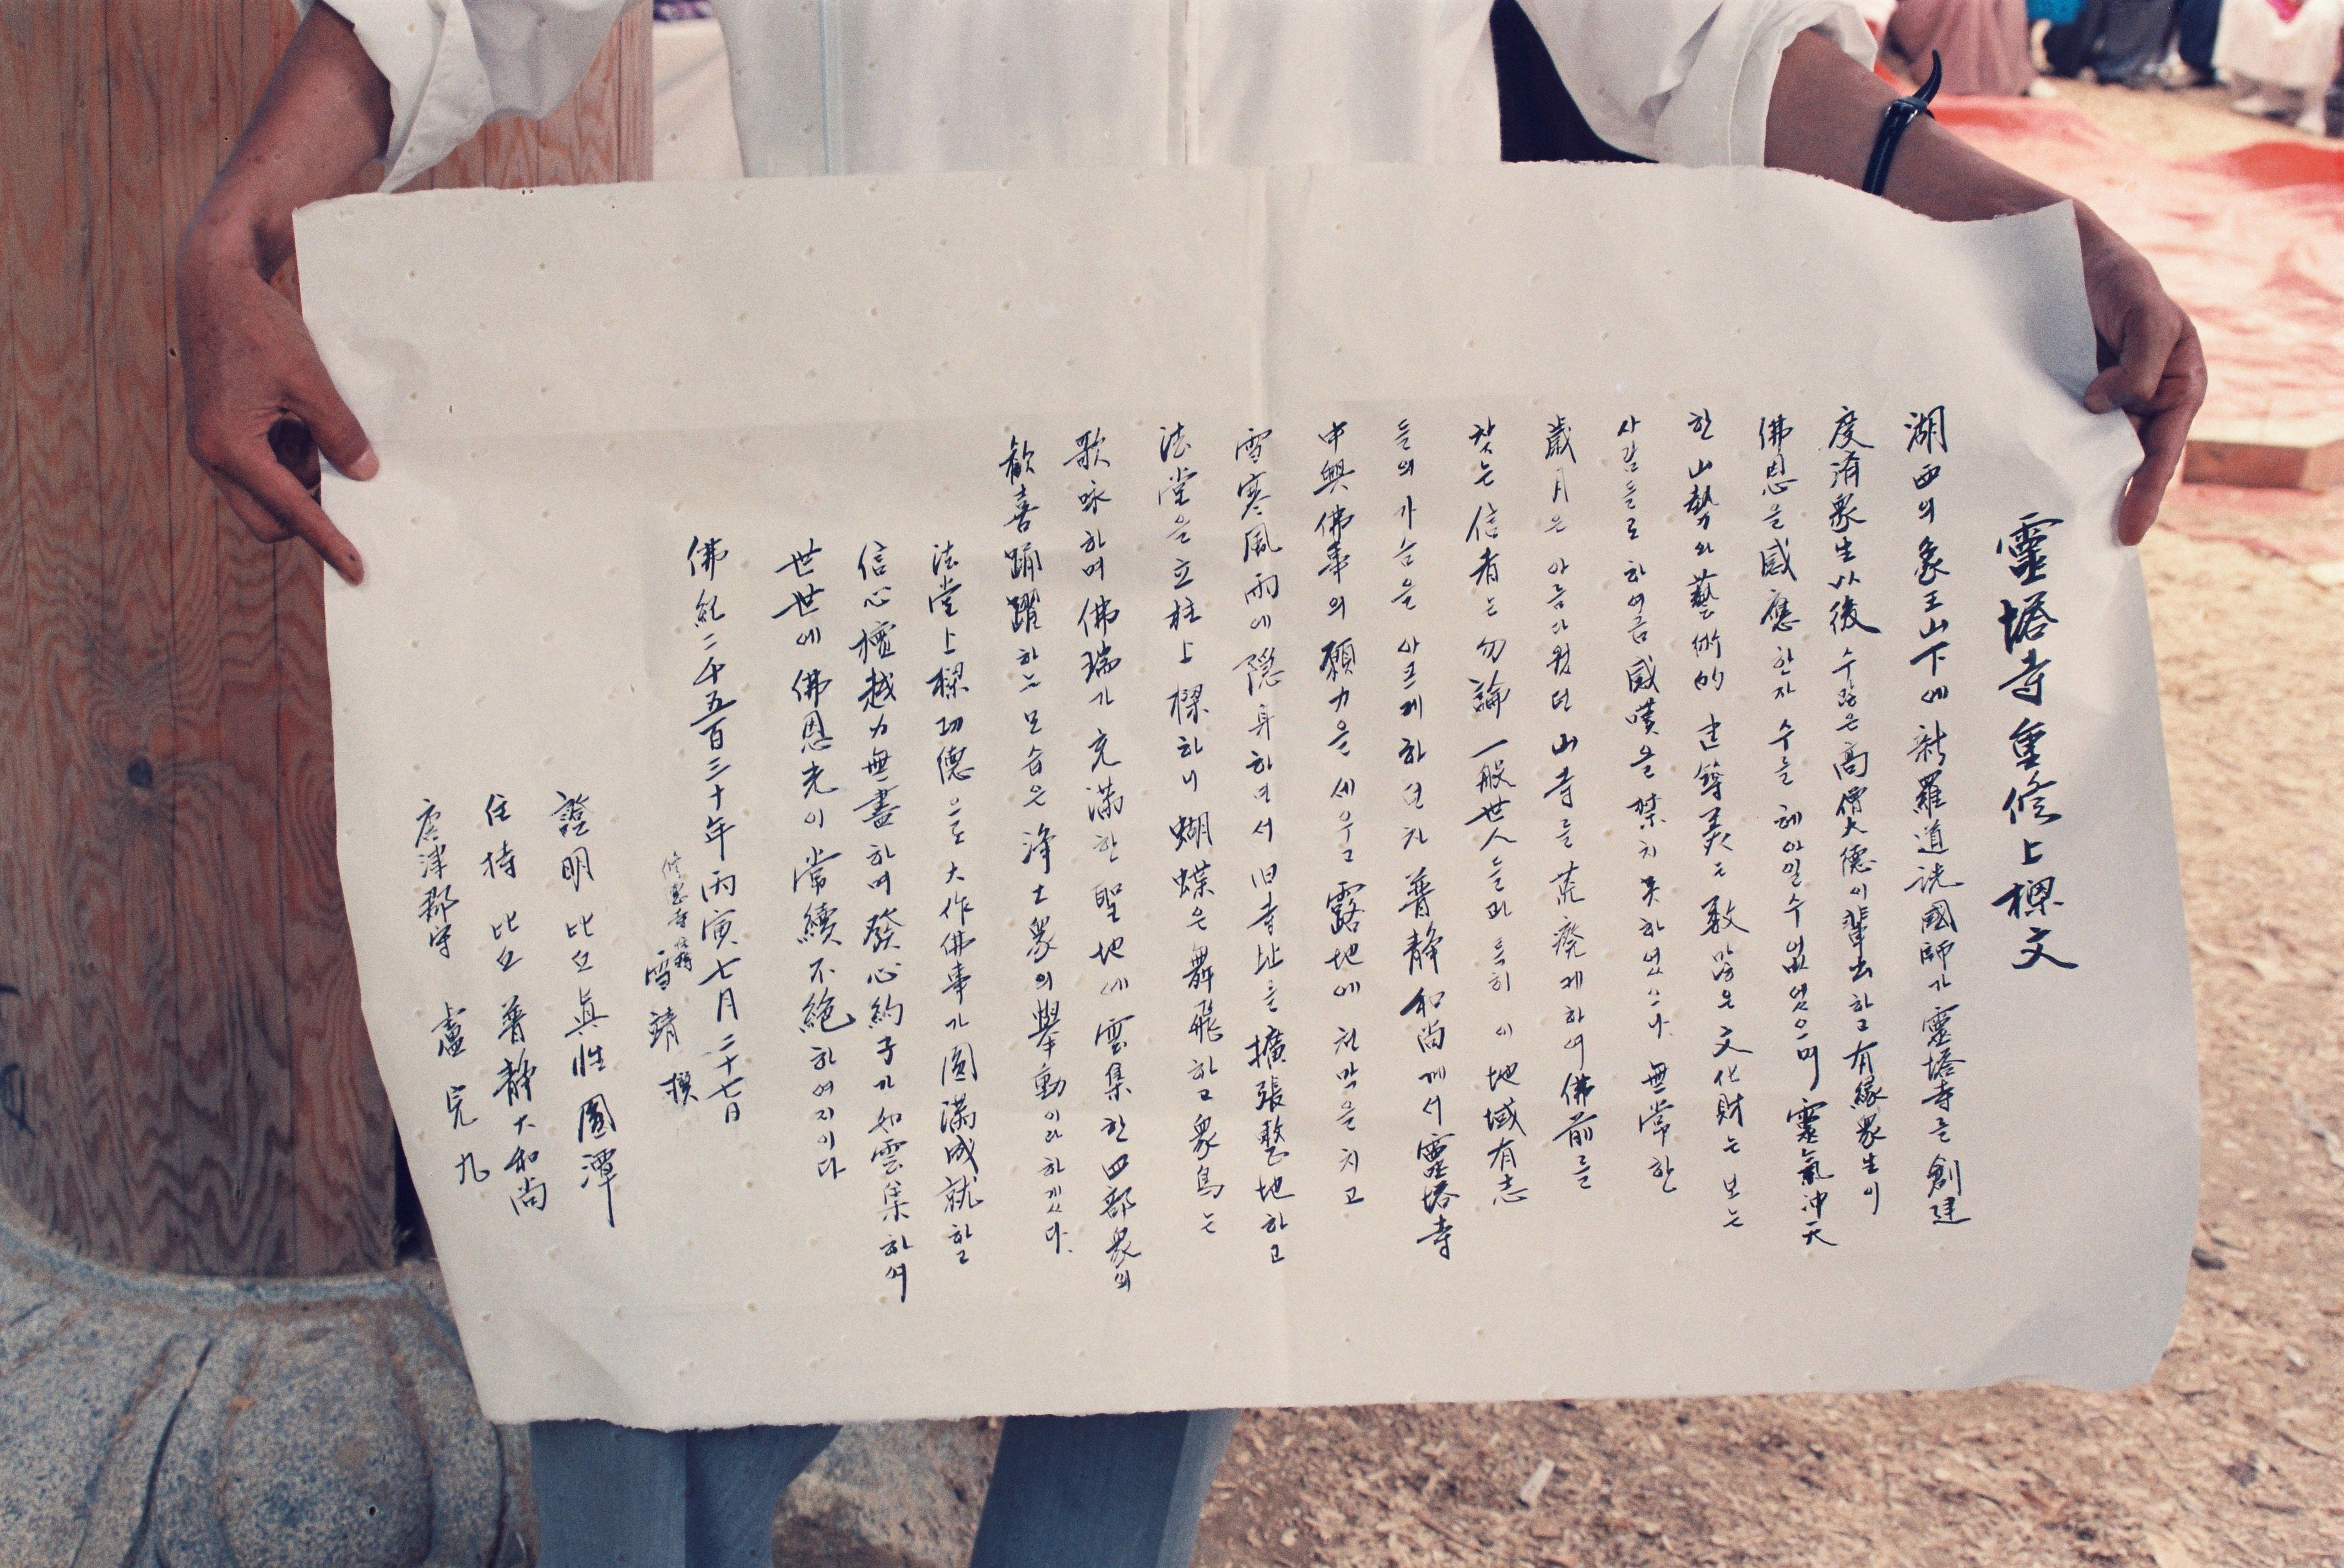 靈塔寺重修上樑文
湖西의 象王山下에 新羅道詵國師가 靈塔寺를 創建
度濟衆生以後 수많은 高僧大德이 輩出하고 有緣衆生이
佛恩을 感應한자 수를 헤아릴수 없었으며 靈氣冲天
한 山勢와 藝術的 建築美는 數많은 文化財는 보는
사람들로 하여금 感嘆을 禁치 못하였으나. 無常한
歲月은 아름다웠던 山寺를 荒廢케하여 佛前를
찾는 信者는 勿論 一般世人들과 특히 이 地域有志
들의 가슴을 아프게 하던차 普靜和尙께서 靈塔寺
中興佛事의 願力을 세우고 露地에 천막을 치고
雪寒風雨에 隱身하면서 旧寺址를 擴張整地하고
法堂을 立柱上樑하니 蝴蝶은 舞飛하고 衆鳥는
歌咏하며 佛瑞가 充滿한 聖地에 雲集한 四部衆의
歡喜踊躍하는 모습은 淨土衆의 擧動이라 하겠다.
法堂上樑功德으로 大作佛事가 圓滿成就하고
信心檀越力無盡하며 發心納子가 如雲集하여
世世에 佛恩光이 常續不絶하여지이다
佛紀二千五百三十年丙寅七月二十七日
雪靖 撰
證明 比丘 眞性 圓潭
住持 比丘 普靜大和尙
唐津郡守 盧完九